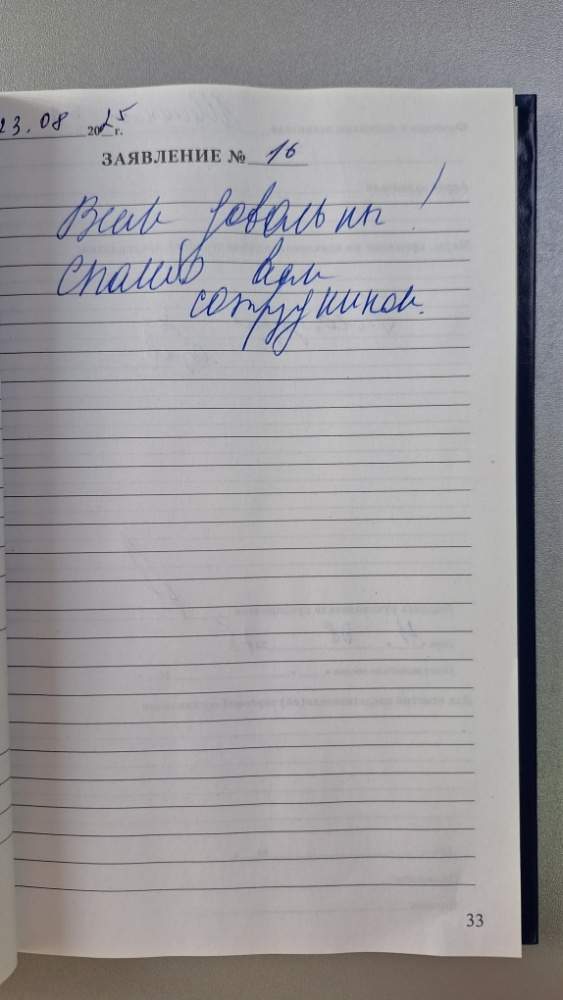 23.08 2025 г.
ЗАЯВЛЕНИЕ № 16
Всем довольны!
Спасибо вам
сотрудников.
33